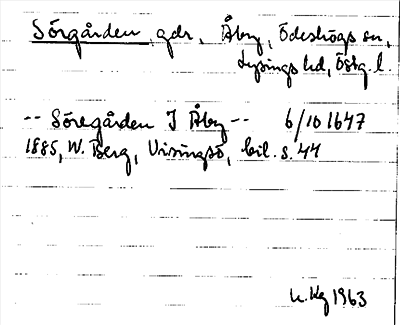 Sörgården, gdr, Åby, Ödeshögs sn,
Lysings hd, Östg. l.
-- Söregården J Åby -- 6/10 1647
1885, W. Berg, Visingsö, bil. s. 44
1963